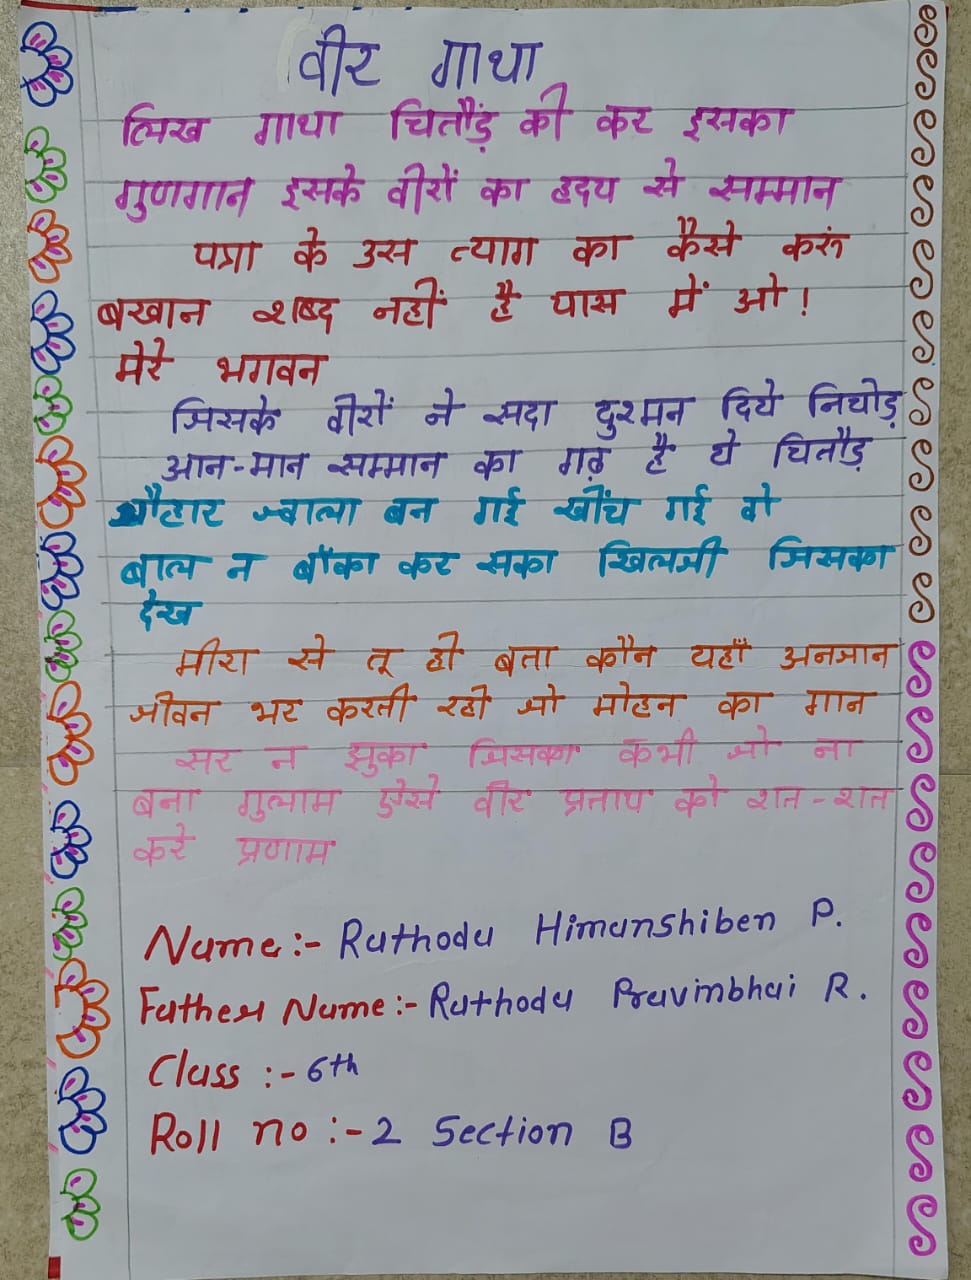 वीर गाथा
लिख गाथा चितौड़ की कर इसका
गुणगान इसके वीरों का हृदय से सम्मान
पन्ना के उस त्याग का कैसे करूं
बखान शब्द नहीं है पास में ओ!
मेरे भगवन
जिसके वीरों ने सदा दुश्मन दिये निचोड़
आन-मान सम्मान का गढ़ है ये चितौड़
जौहार ज्वाला बन गई खींच गई वो
बाल न बाँका कर सका खिलजी जिसका
देख
मीरा से तू ही बता कौन यहाँ अनजान
जीवन भर करती रही जो मोहन का गान
सर न झुका जिसका कभी जो ना
बना गुलाम ऐसे वीर प्रताप को शत-शत
करे प्रणाम
Name:- Rathoda Himanshiben P.
Father Name:- Rathoda Pravinbhai R.
Class :- 6th
Roll no :- 2 Section B